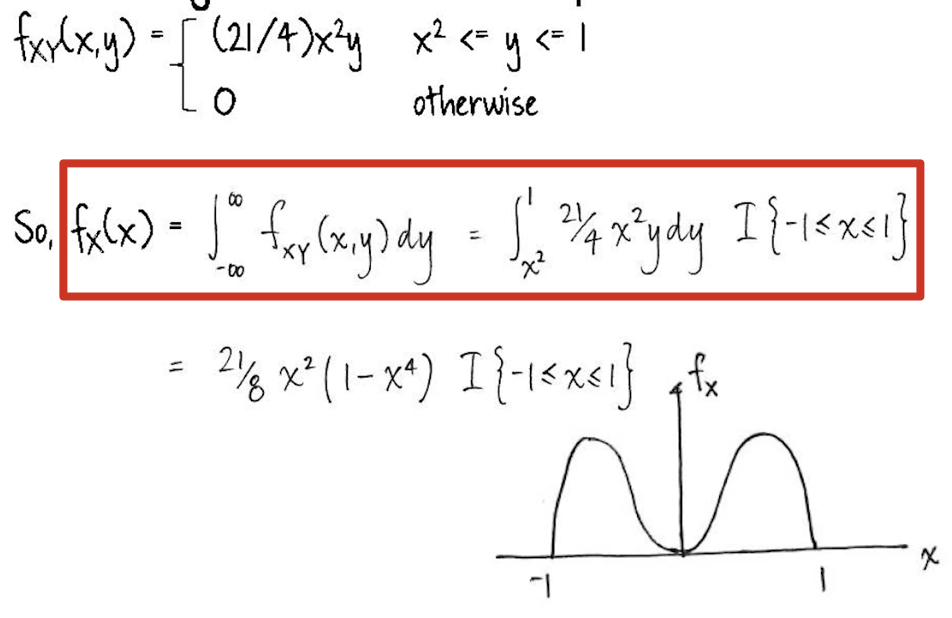 f_XY(x,y) = { (21/4)x²y   x² <= y <= 1
0   otherwise
So, f_X(x) = ∫_{-∞}^{∞} f_XY(x,y) dy = ∫_{x²}^{1} 21/4 x²y dy I{-1≤x≤1}
= 21/8 x²(1-x⁴) I{-1≤x≤1}
f_x
-1   1   x